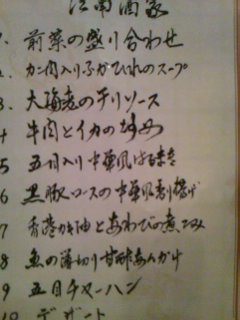 江南酒家
1. 前菜の盛り合わせ
2. カニ肉入りふかひれのスープ
3. 大海老のチリソース
4 牛肉とイカの炒め
5 五目入り中華風はるまき
6 黒豚ロースの中華風香り揚げ
7 香港カキ油とあわびの煮こみ
8 魚の薄切り甘酢あんかけ
9 五目チャーハン
10 デザート